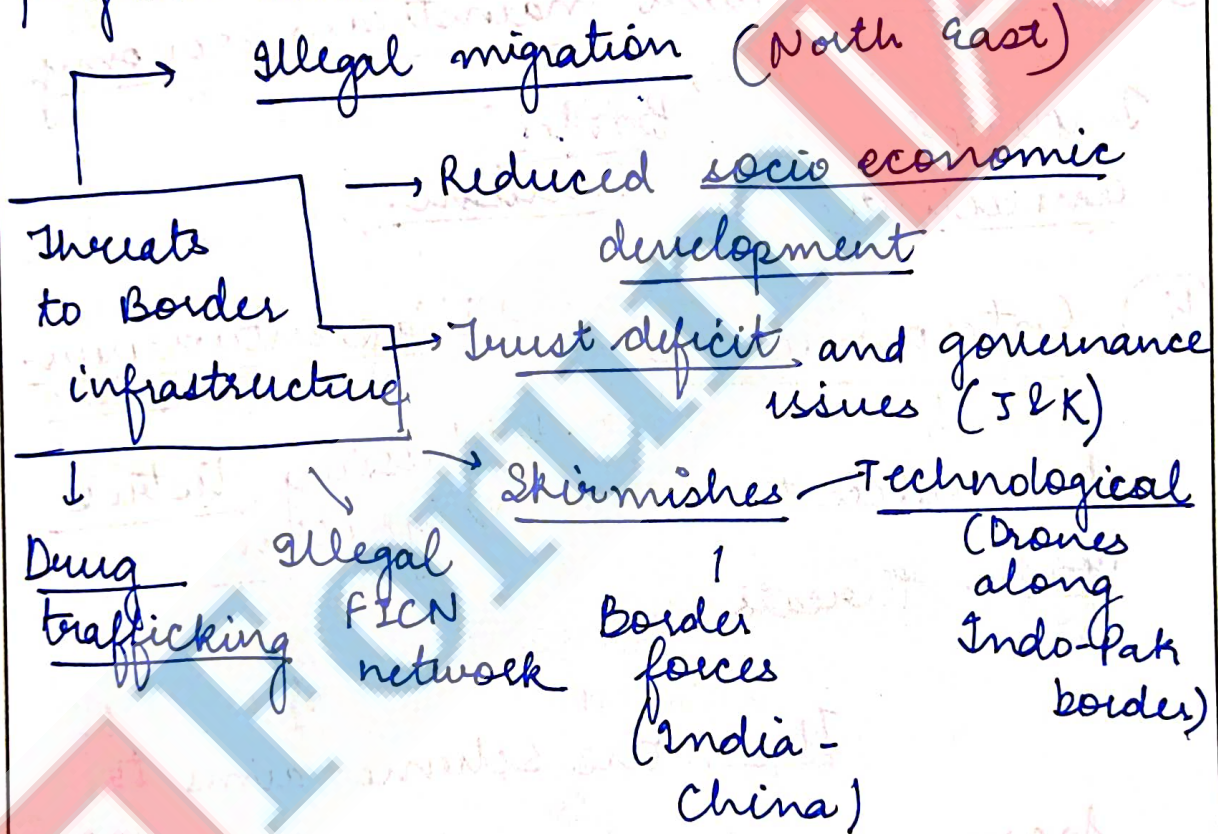 Illegal migration (North East)
→ Reduced socio economic
development
Threats
to Border
infrastructure
→ Trust deficit and governance
issues (J&K)
Skirmishes — Technological
(Drones
along
Indo-Pak
border)
Border
forces
(India -
China)
Illegal
FICN
network
Drug
trafficking
Forum